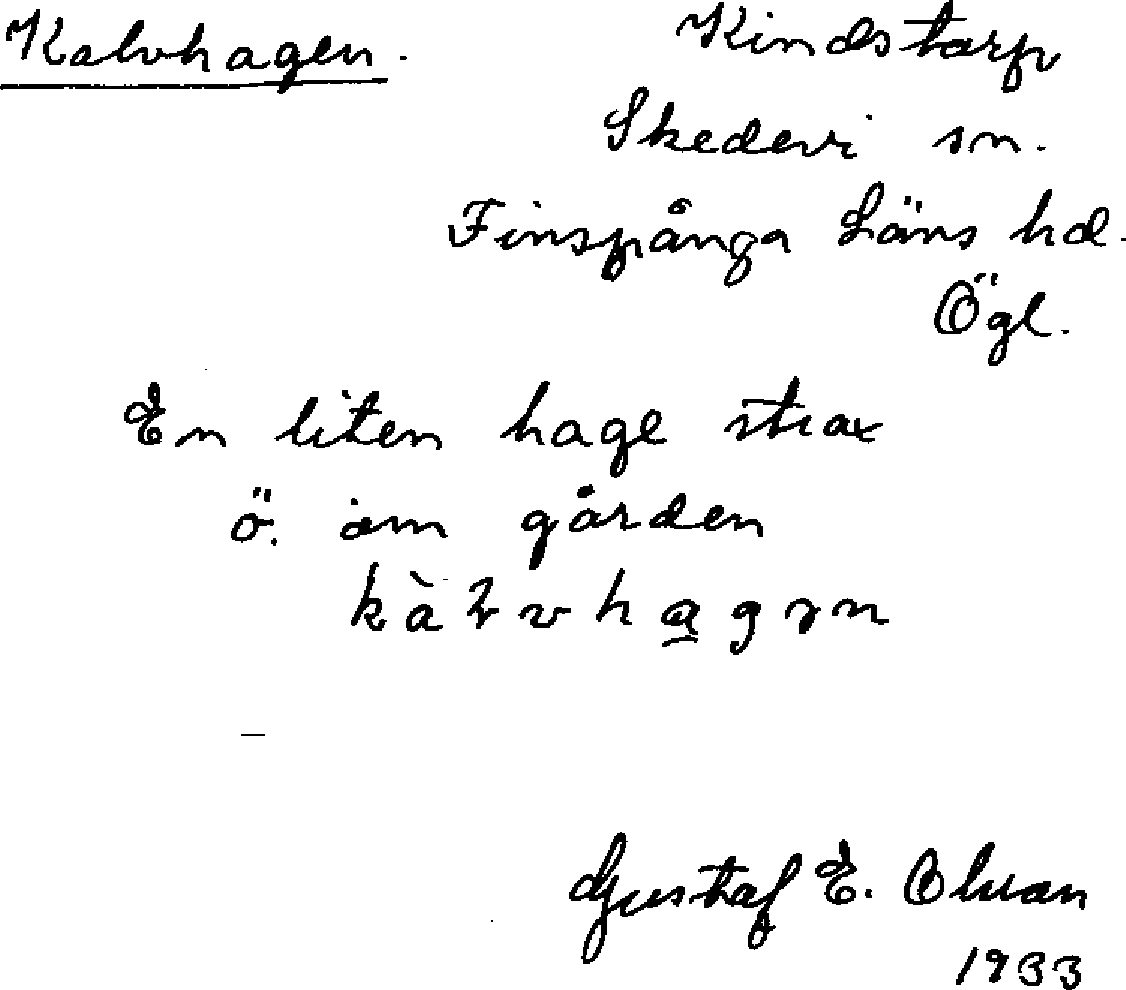 Kalvhagen.
Kindstorp
Skedevi sn.
Finspånga Läns hd.
Ögl.
En liten hage strax
ö. om gården
Gustaf E. Olsson
1933